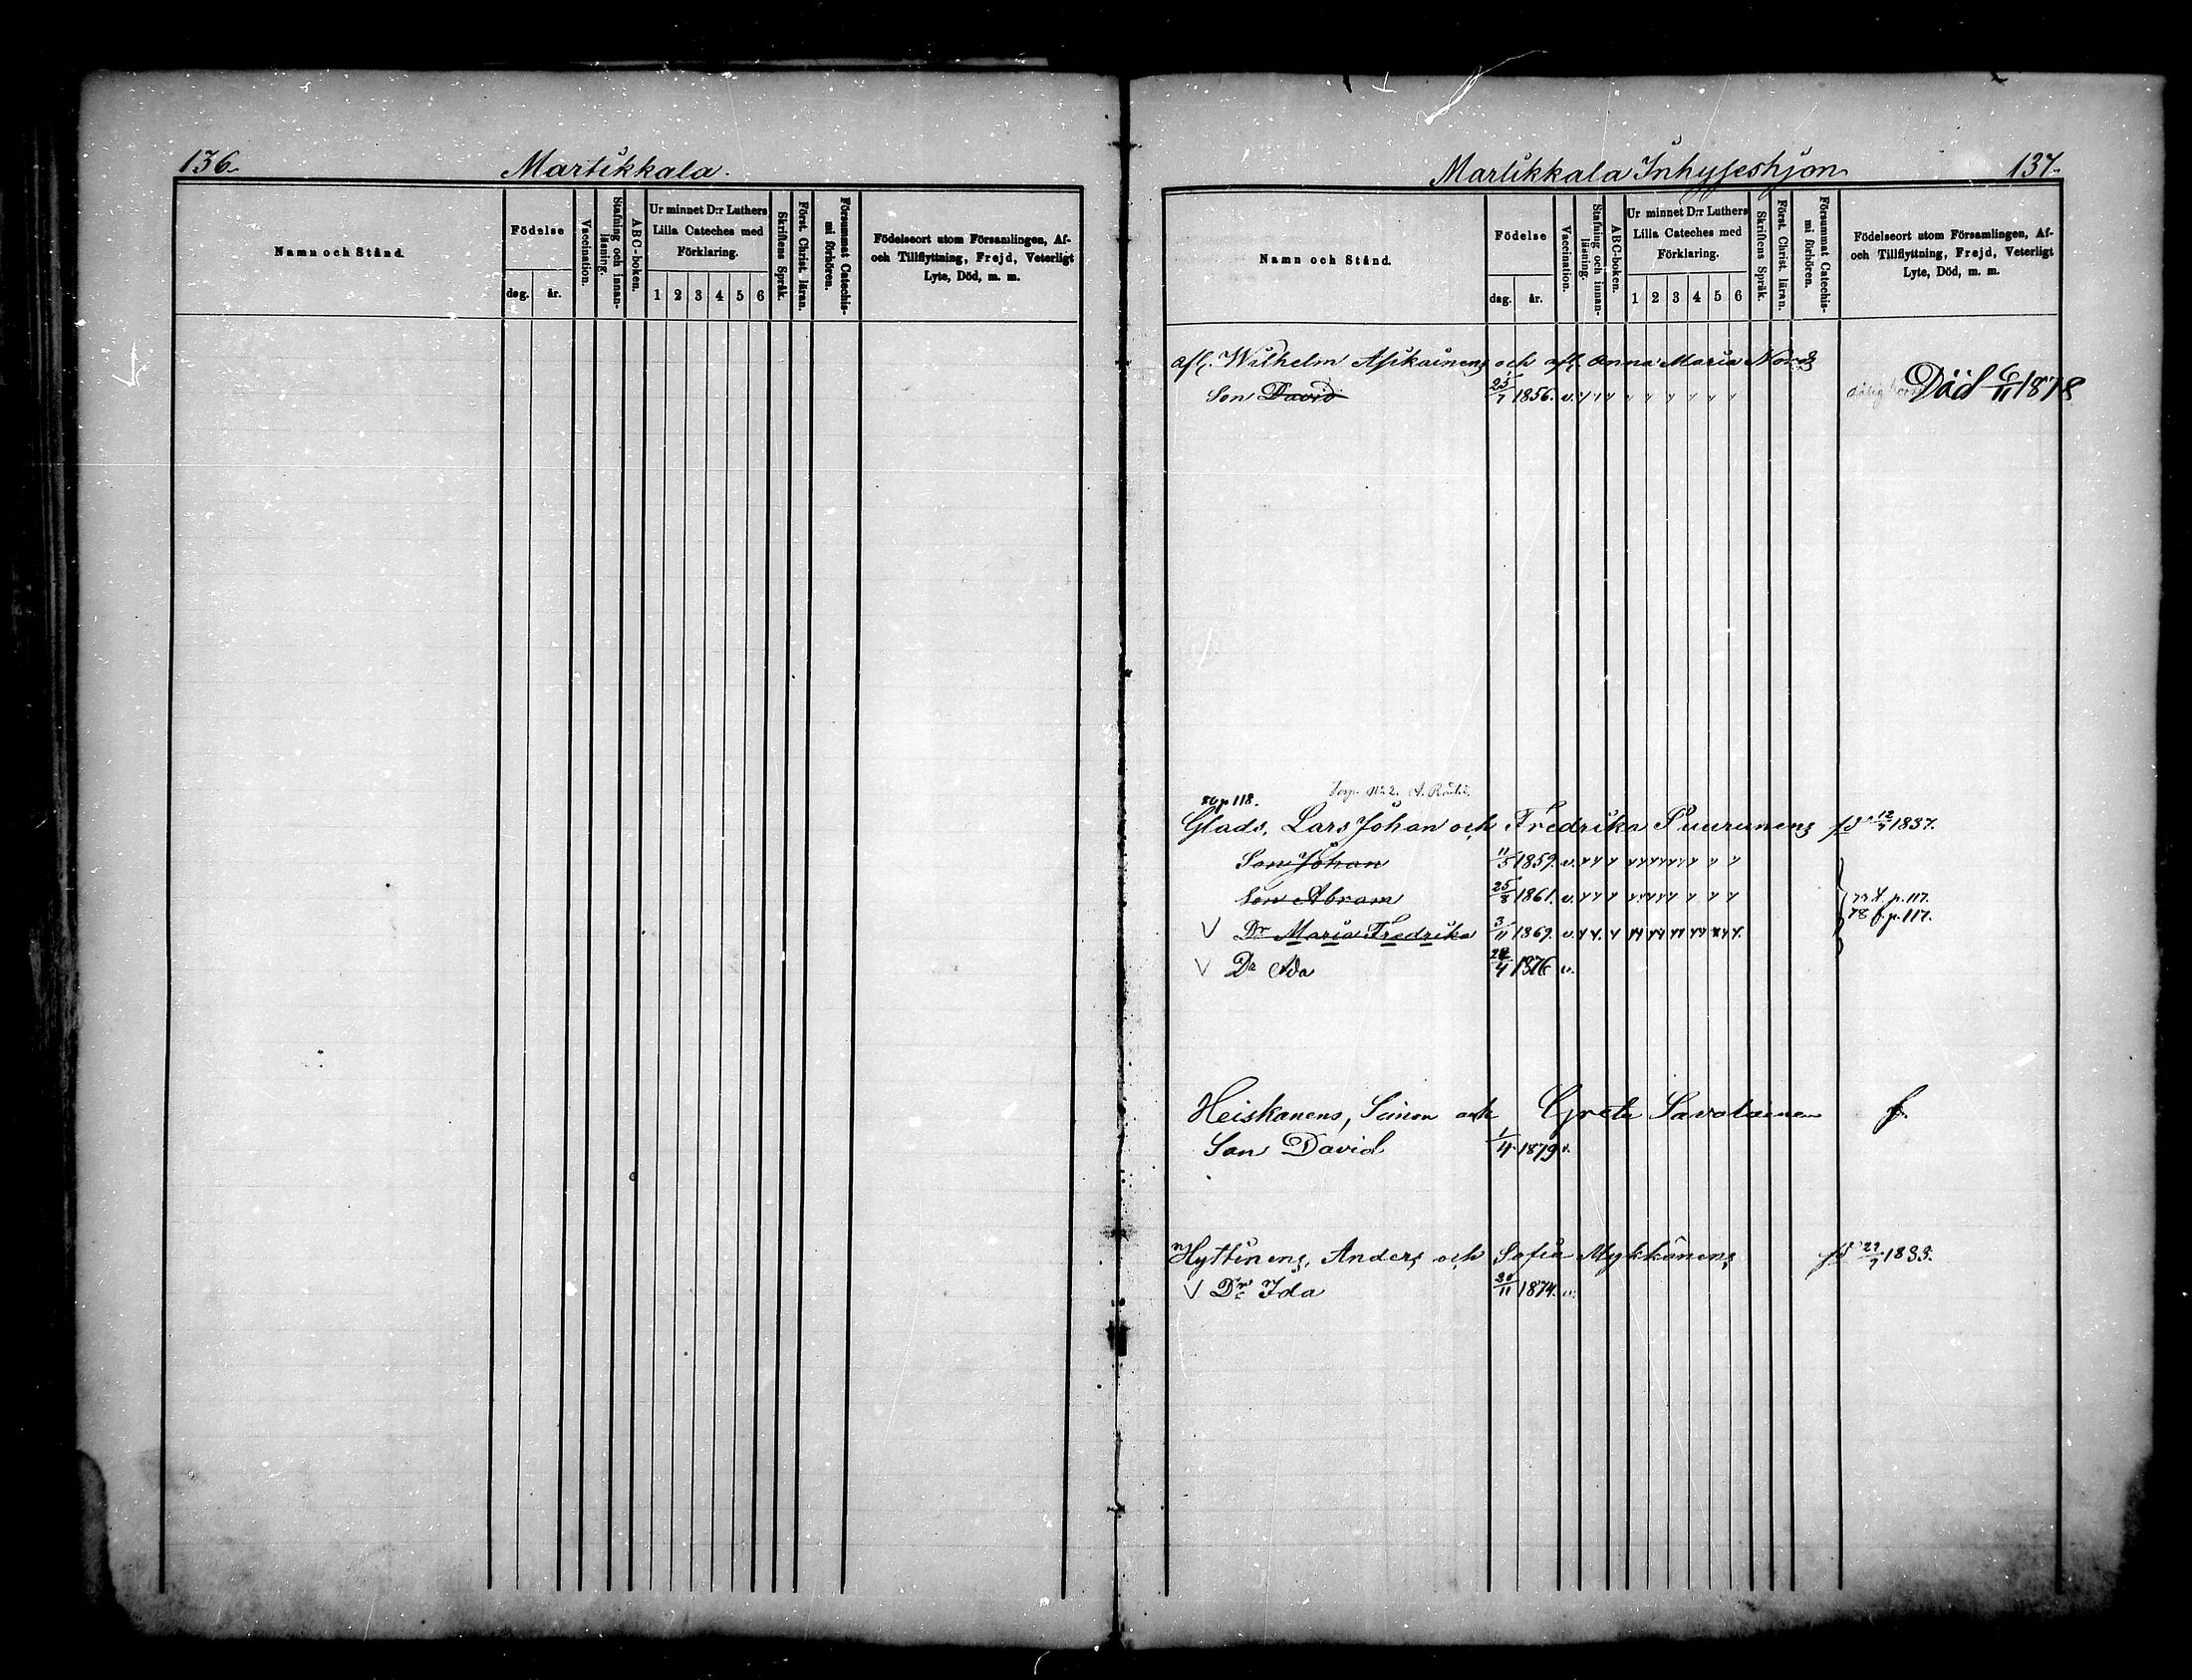 136.
Martikkala.
Namn och Stånd.
Födelse
dag. år.
Vaccination.
Stafning och innanläsning.
ABC-boken.
Ur minnet D:r Luthers Lilla Cateches med Förklaring.
1 2 3 4 5 6
Skriftens Språk.
Först. Christ. läran.
Försummat Catechismi förhören.
Födelseort utom Församlingen, Af-
och Tillflyttning, Frejd, Veterligt
Lyte, Död, m. m.
Martikkala Inhyseshjon
137.
Namn och Stånd.
Födelse
dag. år.
Vaccination.
Stafning och innanläsning.
ABC-boken.
Ur minnet D:r Luthers Lilla Cateches med Förklaring.
1 2 3 4 5 6
Skriftens Språk.
Först. Christ. läran.
Försummat Catechismi förhören.
Födelseort utom Församlingen, Af-
och Tillflyttning, Frejd, Veterligt
Lyte, Död, m. m.
afl. Wilhelm Asikainens och afl. Anna Maria Nords
Son David 25/7 1856. v. Död 6/11 1878
80 p 118.
Glads, Lars Johan och Fredrika Puurunens fd 12/7 1837.
Son Johan 11/5 1859. v.
Son Abram 25/8 1861. v. p. 117.
78 f. p. 117.
V Dr Maria Fredrika 3/11 1869. v.
V Dr Ada 24/4 1876 v.
Heiskanens, Simon och Greta Savolainen f
Son David 1/4 1879 v.
Hyttinens, Anders och Sofia Mykkänens fd 29/7 1833.
V Dr Ida 30/11 1874. v.